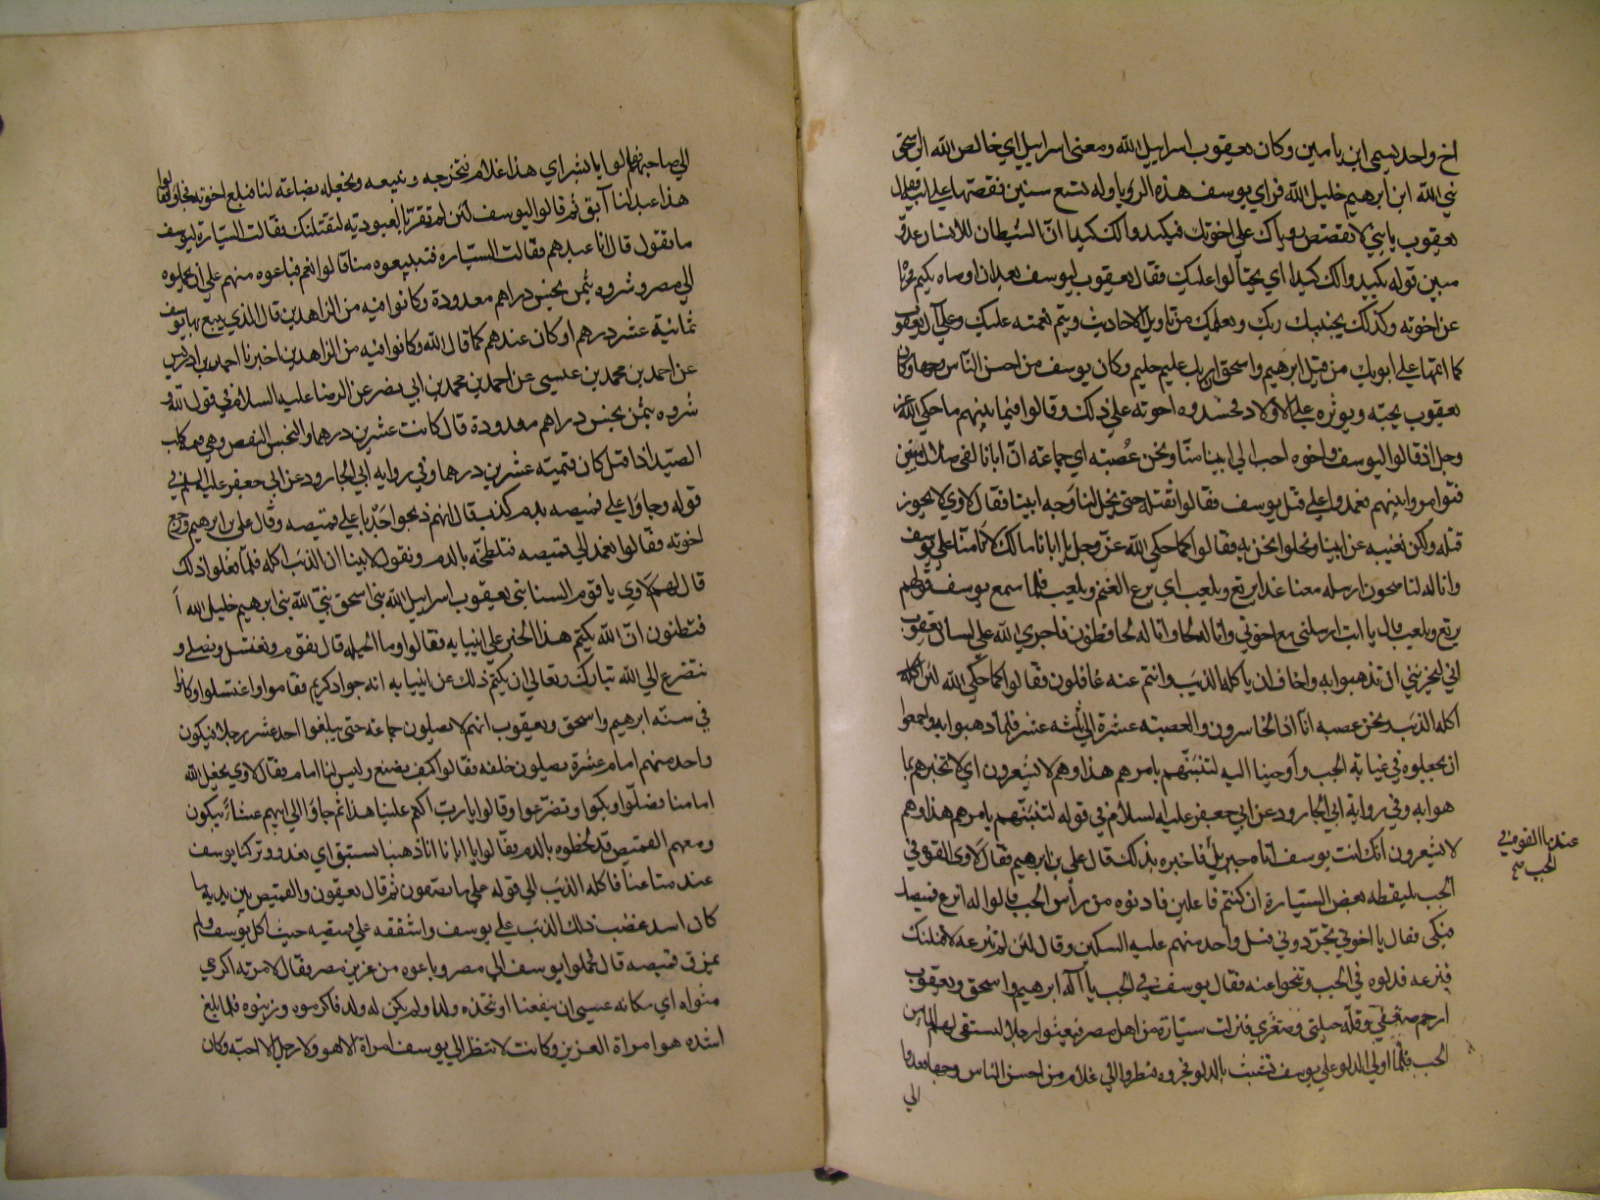 اخ واحد يسمى ابن يامين وكان يعقوب اسرائيل الله ومعنى اسرائيل اي خالص الله ابن اسحق
نبي الله ابن ابرهيم خليل الله فراى يوسف هذه الرؤيا وله تسع سنين فقصها على ابيه فقال
يعقوب يا بني لا تقصص رؤياك على اخوتك فيكيدوا لك كيدا ان الشيطان للانسان عدو
مبين قوله يكيدوا لك كيدا اي يحتالوا عليك فقال يعقوب ليوسف
عن اخوته وكذلك يجتبيك ربك ويعلمك من تاويل الاحاديث ويتم نعمته عليك وعلى آل يعقوب
كما اتمها على ابويك من قبل ابرهيم واسحق ان ربك عليم حكيم وكان يوسف من احسن الناس وجها وكان
يعقوب يحبه ويوثره على الاولاد فحسدوه اخوته على ذلك وقالوا فيما بينهم ما حكى الله عز
وجل اذ قالوا ليوسف واخوه احب الى ابينا منا ونحن عصبة اي جماعة ان ابانا لفي ضلال مبين
فتوامروا بينهم تعمدوا على قتل يوسف فقالوا نقتله حتى يخل لنا وجه ابينا فقال لاوي لا يجوز
قتله ولكن نغيبه عن ابينا ونخلوا نحن به فقالوا كما حكى الله عز وجل يا ابانا مالك لا تامنا على يوسف
وانا له لناصحون ارسله معنا غدا يرتع ويلعب اي يرع الغنم ويلعب فلما سمع يوسف قولهم
يرتع ويلعب قال يا ابت ارسلني مع اخوتي وانا له لحافظون فاجرى الله على لسان يعقوب
اني ليحزنني ان تذهبوا به واخاف ان ياكله الذئب وانتم عنه غافلون فقالوا كما حكى الله لئن اكله
اكله الذئب ونحن عصبة انا اذا لخاسرون والعصبة عشرة الى ثلثه عشر فلما ذهبوا به واجمعوا
ان يجعلوه في غيابة الجب واوحينا اليه لتنبئنهم بامرهم هذا وهم لا يشعرون اي لا تخبرهم بما
هموا به وفي رواية ابي الجارود عن ابي جعفر عليه السلام في قوله لتنبئنهم بامرهم هذا وهم
لا يشعرون انك انت يوسف اتاه جبرئيل فاخبره بذلك قال علي بن ابرهيم فقال لاوى القوه في
عندنا القوه في
الجب صح
الجب يلتقطه بعض السيارة ان كنتم فاعلين فادنوه من راس الجب فقالوا له انزع قميصك
فبكى فقال يا اخوتي تجردوني فسل واحد منهم عليه السكين وقال لئن لم تنزعه لاقتلنك
فنزعه فدلوه في الجب وتنحوا عنه فقال يوسف في الجب يا اله ابرهيم واسحق ويعقوب
ارحم ضعفي وقلة حيلتي وصغري فنزلت سيارة من اهل مصر فبعثوا رجلا ليستقي لهم الماء من
الجب فلما ادلى الدلو على يوسف تشبث بالدلو فجروه فنظروا الى غلام من احسن الناس وجها فعدوا
الى
الى صاحبهم فقالوا يا بشراي هذا غلام فنخرجه ونبيعه ونجعله بضاعة لنا فبلغ اخوته فجاؤا وقالوا
هذا عبد لنا آبق ثم قالوا ليوسف لئن لم تقر لنا بالعبودية لنقتلنك فقالت السيارة ليوسف
ما تقول قال انا عبدهم فقالت السيارة فتبيعوه منا قالوا نعم فباعوه منهم على ان يحملوه
الى مصر وشروه بثمن بخس دراهم معدودة وكانوا فيه من الزاهدين قال الذي بيع بها يوسف
ثمانية عشر درهم او كان عندهم كما قال الله وكانوا فيه من الزاهدين اخبرنا احمد بن ادريس
عن احمد بن محمد بن عيسى عن احمد بن محمد بن ابي نصر عن الرضا عليه السلام في قول الله و
شروه بثمن بخس دراهم معدودة قال كانت عشرين درهما والبخس النقص وهي قيمة كلب
الصيد اذا قتل كان قيمته عشرين درهما وفي رواية ابي الجارود عن ابي جعفر عليه السلم في
قوله وجاؤا على قميصه بدم كذب قال انهم ذبحوا جديا على قميصه وقال علي بن ابرهيم ورجع
اخوته فقالوا نعمد الى قميصه فنلطخه بالدم ونقول لابينا ان الذئب اكله فلما فعلوا ذلك
قال لهم لاوي يا قوم السنا بني يعقوب اسرائيل الله بن اسحق نبي الله بن ابرهيم خليل الله ا
فتظنون ان الله يكتم هذا الخبر على انبيائه فقالوا وما الحيلة قال نقوم ونغتسل ونصلي و
نتضرع الى الله تبارك وتعالى ان يكتم ذلك عن انبيائه انه جواد كريم فقاموا واغتسلوا وكانوا
في سنة ابرهيم واسحق ويعقوب انهم لا يصلون جماعة حتى يبلغوا احد عشر رجلا فيكون
واحد منهم امام عشرة يصلون خلفه فقالوا كيف نصنع وليس لنا امام فقال لاوي يجعل الله
امامنا فصلوا وبكوا وتضرعوا وقالوا يا رب اكتم علينا هذا ثم جاؤا الى ابيهم عشاء يبكون
ومعهم القميص قد لطخوه بالدم فقالوا يا ابانا انا ذهبنا نستبق اي نعدو وتركنا يوسف
عند متاعنا فاكله الذئب الى قوله على ما تصفون ثم قال يعقوب ما
كان اشد غضب ذلك الذئب على يوسف واشفقه على قميصه حيث اكل يوسف ولم
يمزق قميصه قال فحملوا يوسف الى مصر وباعوه من عزيز مصر فقال لامرته اكرمي
مثواه اي مكانه عسى ان ينفعنا او نتخذه ولدا ولم يكن له ولد فاكرموه وربوه فلما بلغ
اشده هوته امراة العزيز وكانت لا تنظر الى يوسف امراة الا هوته ولا رجل الا احبه وكان